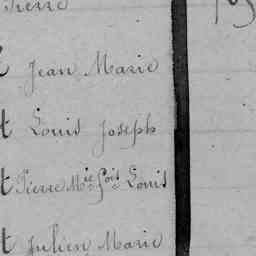 Pierre
t Jean Marie
t Louis Joseph
t Pierre Mie fois Louis
t Julien Marie